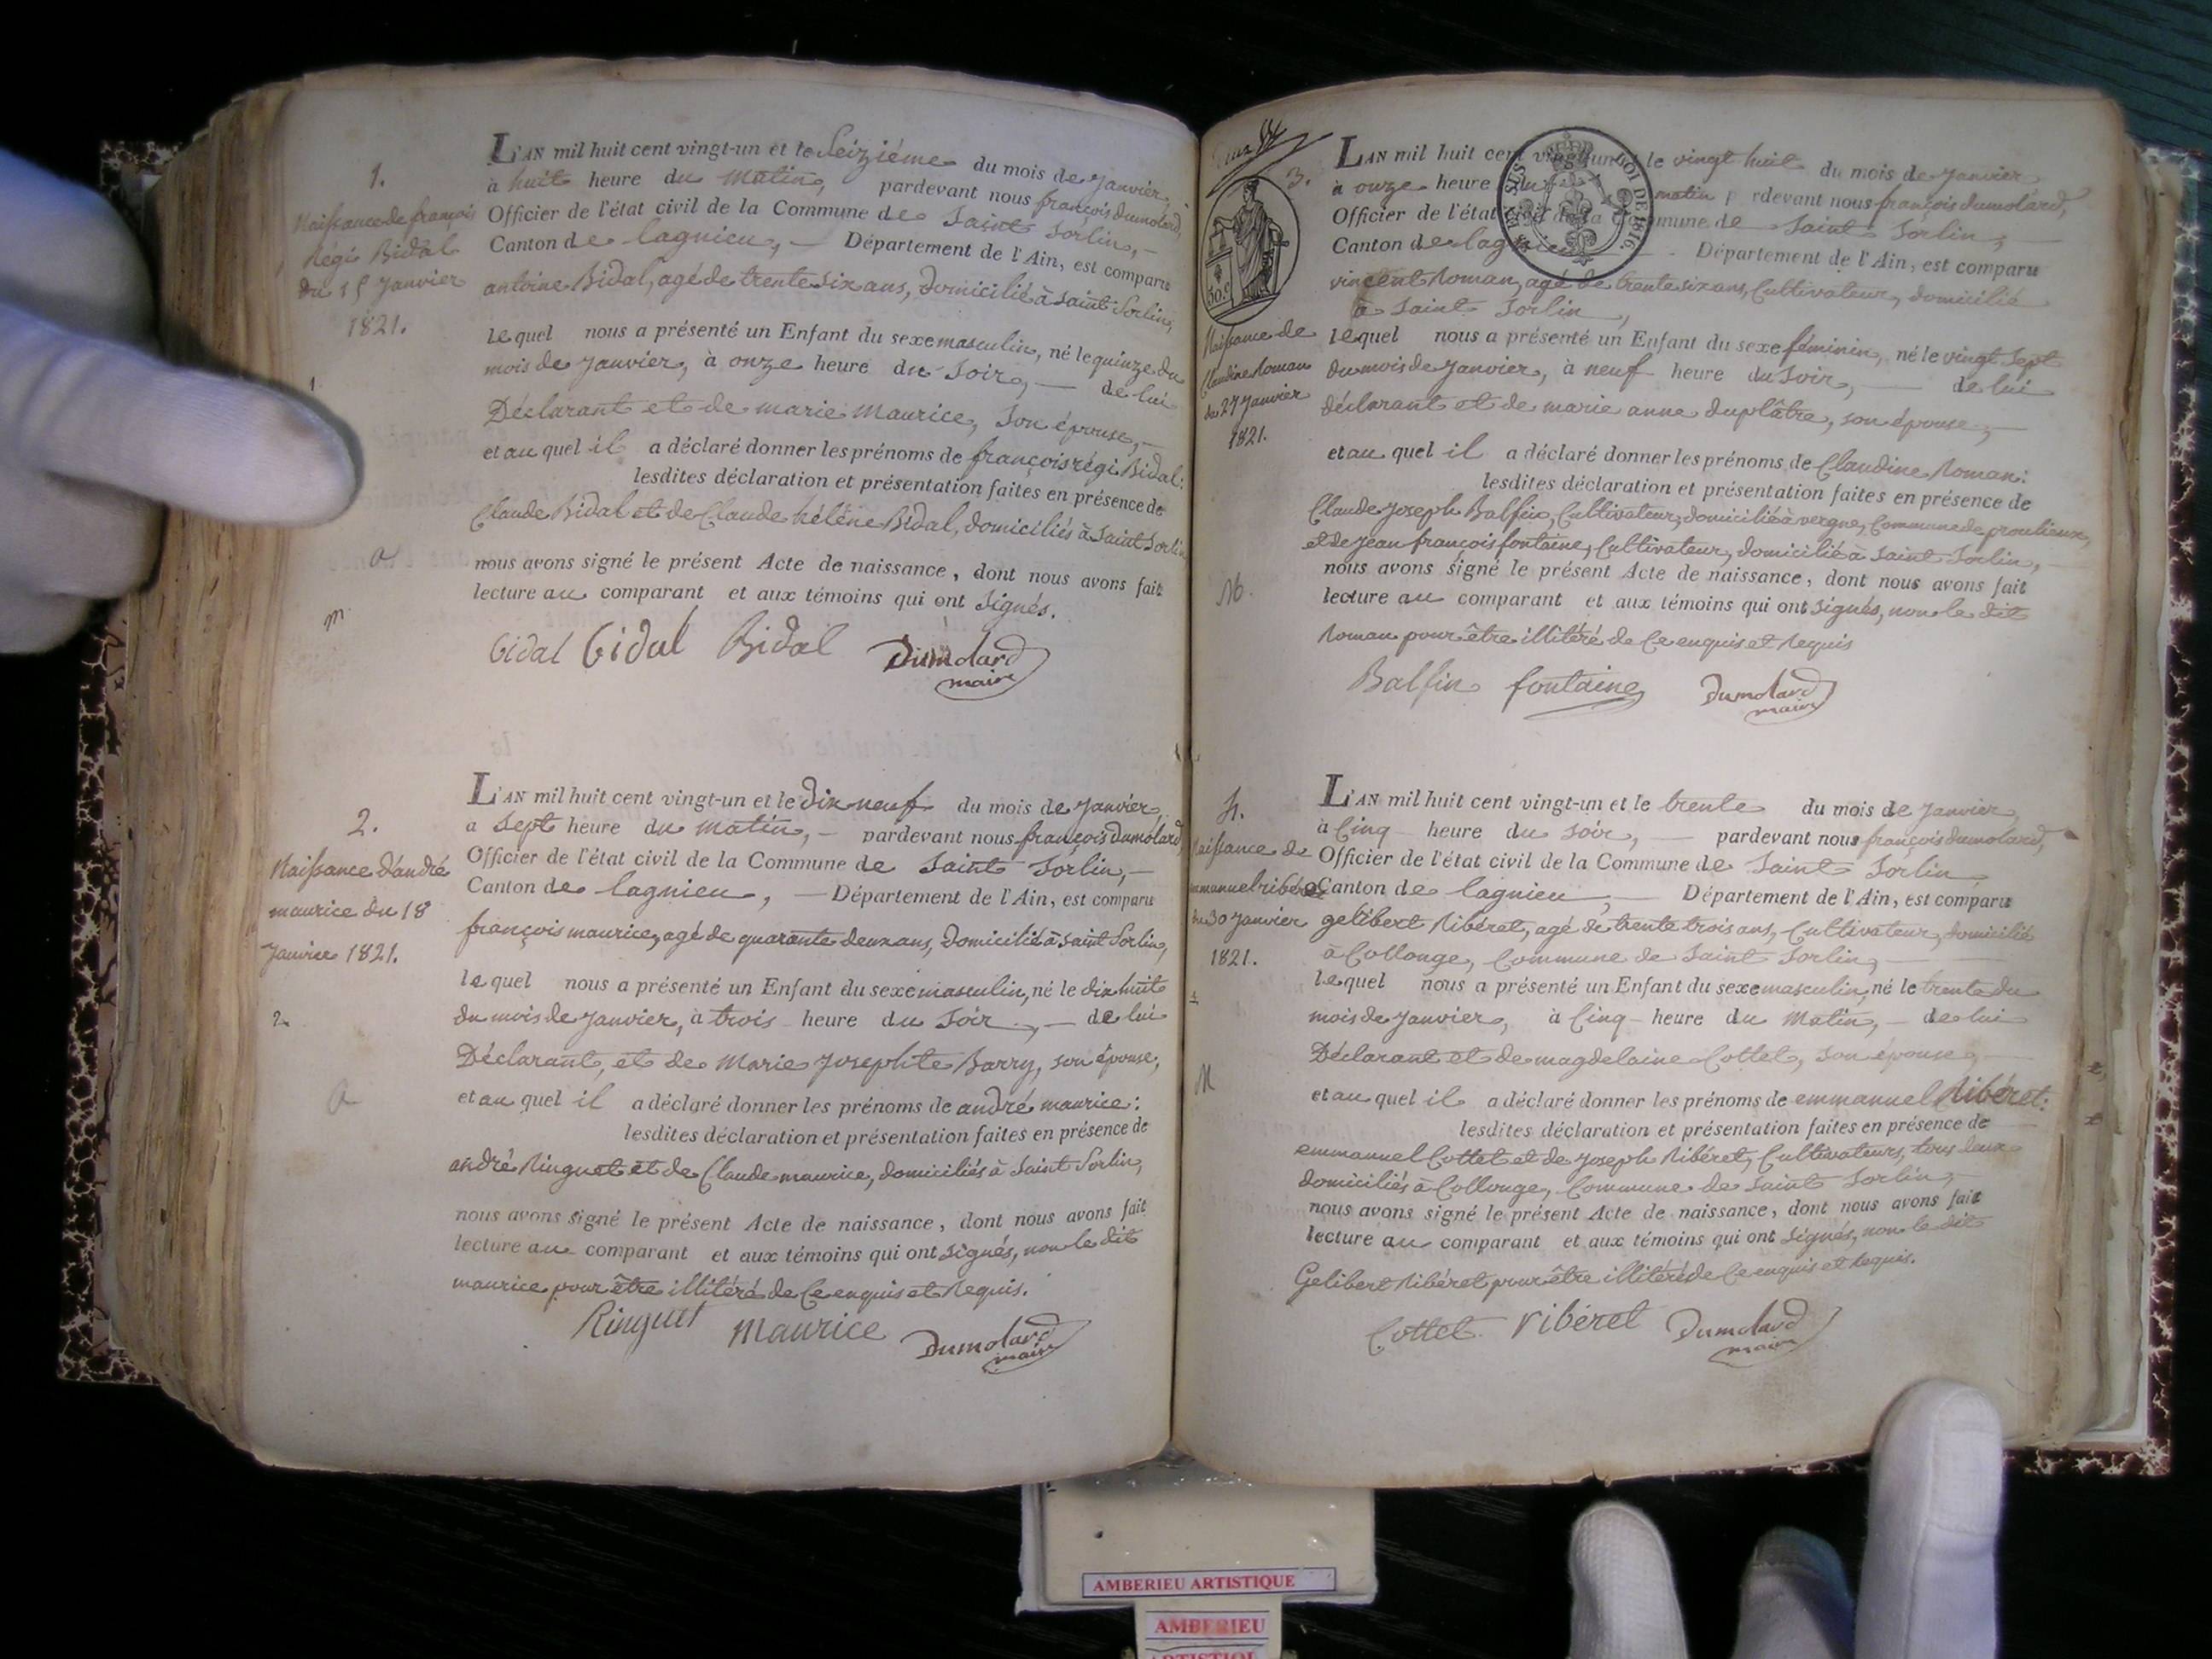 1.
Naissance de françois
Régis Bidal
du 15 Janvier
1821.
1.
a
m
L'AN mil huit cent vingt-un et le Seiziéme du mois de Janvier,
à huit heure du matin, pardevant nous françois dumolard,
Officier de l'état civil de la Commune de Saint Sorlin, —
Canton de lagnieu, — Département de l'Ain, est comparu
antoine Bidal, agé de trente six ans, Domicilié à Saint Sorlin,
lequel nous a présenté un Enfant du sexe masculin, né le quinze du
mois de Janvier, à onze heure du Soir, — de lui
Déclarant et de marie Maurice, Son épouse, —
et au quel il a déclaré donner les prénoms de françois régi Bidal:
lesdites déclaration et présentation faites en présence de
Claude Bidal et de Claude héléne Bidal, domiciliés à Saint Sorlin
nous avons signé le présent Acte de naissance, dont nous avons fait
lecture au comparant et aux témoins qui ont Signés.
bidal bidal Bidal Dumolard
maire
2.
Naissance d'andré
maurice du 18
Janvier 1821.
2.
a
L'AN mil huit cent vingt-un et le dix neuf du mois de Janvier,
a Sept heure du matin, — pardevant nous françois Dumolard
Officier de l'état civil de la Commune de Saint Sorlin, —
Canton de lagnieu, — Département de l'Ain, est comparu
françois maurice, agé de quarante deux ans, Domicilié à Saint Sorlin,
lequel nous a présenté un Enfant du sexe masculin, né le dix huit
du mois de Janvier, à trois heure du Soir, — de lui
Déclarant, et de Marie Josephte Barry, son épouse,
et au quel il a déclaré donner les prénoms de andré maurice:
lesdites déclaration et présentation faites en présence de
andré Ringuet et de Claude maurice, domiciliés à Saint Sorlin,
nous avons signé le présent Acte de naissance, dont nous avons fait
lecture au comparant et aux témoins qui ont signés, non le dit
maurice pour être illitéré de Ce enquis et Requis.
Ringuet Maurice Dumolard
maire
3.
30.c
ROI DE 1816.
Naissance de
Claudine Roman
du 27 Janvier
1821.
M.
L'AN mil huit cent vingt-un et le vingt huit du mois de Janvier
à onze heure du matin pardevant nous françois dumolard,
Officier de l'état civil de la Commune de Saint Sorlin,
Canton de lagnieu — Département de l'Ain, est comparu
vincent Roman, agé de trente six ans, Cultivateur, domicilié
à Saint Sorlin,
lequel nous a présenté un Enfant du sexe féminin, né le vingt Sept
du mois de Janvier, à neuf heure du Soir, — de lui
déclarant et de marie anne duplâtre, son épouse, —
et au quel il a déclaré donner les prénoms de Claudine Roman:
lesdites déclaration et présentation faites en présence de
Claude Joseph Balfin, Cultivateur, domicilié à vergne, Commune de proulieux,
et de Jean françois fontaine, Cultivateur, domicilié à Saint Sorlin, —
nous avons signé le présent Acte de naissance, dont nous avons fait
lecture au comparant et aux témoins qui ont signés, non le dit
Roman pour être illitéré de Ce enquis et Requis
Balfin fontaine Dumolard
maire
4.
Naissance de
emmanuel ribéret
du 30 Janvier
1821.
M
L'AN mil huit cent vingt-un et le trente du mois de Janvier
à Cinq heure du soir, — pardevant nous françois dumolard,
Officier de l'état civil de la Commune de Saint Sorlin
Canton de lagnieu, — Département de l'Ain, est comparu
gelibert Ribéret, agé de trente trois ans, Cultivateur, domicilié
à Collonge, Commune de Saint Sorlin, —
lequel nous a présenté un Enfant du sexe masculin, né le trente du
mois de Janvier, à Cinq heure du Matin, — de lui
Déclarant et de magdelaine Cottet, son épouse, —
et au quel il a déclaré donner les prénoms de emmanuel Ribéret:
lesdites déclaration et présentation faites en présence de
emmanuel Cottet et de Joseph Ribéret, Cultivateurs, tous deux
domiciliés à Collonge, Commune de Saint Sorlin, —
nous avons signé le présent Acte de naissance, dont nous avons fait
lecture au comparant et aux témoins qui ont signés, non le dit
Gelibert Ribéret pour être illitéré de Ce enquis et Requis.
Cottet ribéret Dumolard
maire
AMBERIEU ARTISTIQUE
AMBERIEU
ARTISTIQUE